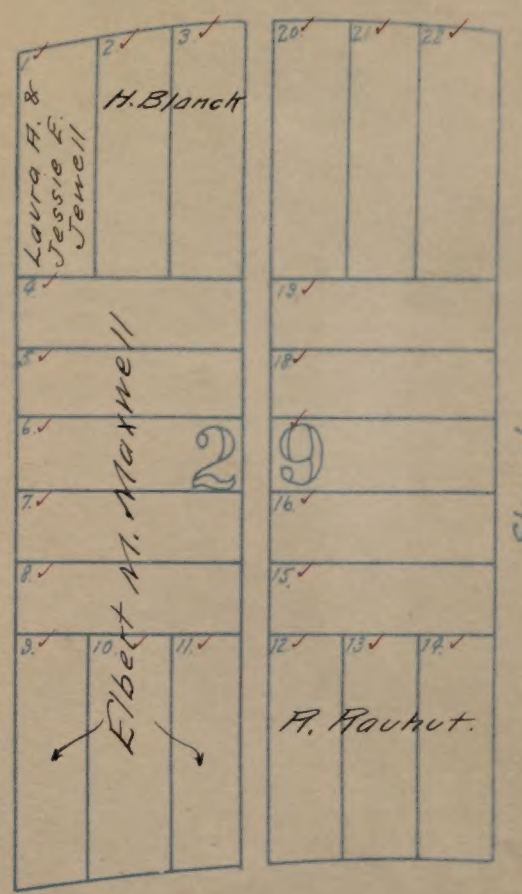 1.
2.
3.
20.
21.
22.
Laura A. &
Jessie E.
Jewell
H. Blanck
4.
19.
5.
18.
6.
29
7.
16.
8.
15.
Elbert M. Maxwell
9.
10.
11.
12.
13.
14.
R. Rauhut.